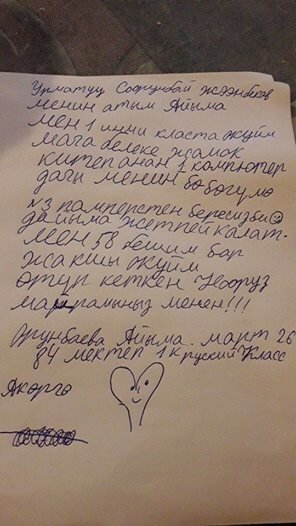 Урматуу Сооронбай Жээнбеков
менин атым Айыма
мен 1 инчи класта окуйм
мага белеке жомок
китеп анан 1 компютер
дагы менин бөбөгүмө
N3 памперстен бересизби
дайыма жетпей калат-
мен 5в бешим бар
жакшы окуйм
өтүп кеткен Нооруз
майрамыңыз менен!!!
Орунбаева Айыма. март 26
84 мектеп 1к руский класс
Акөргө